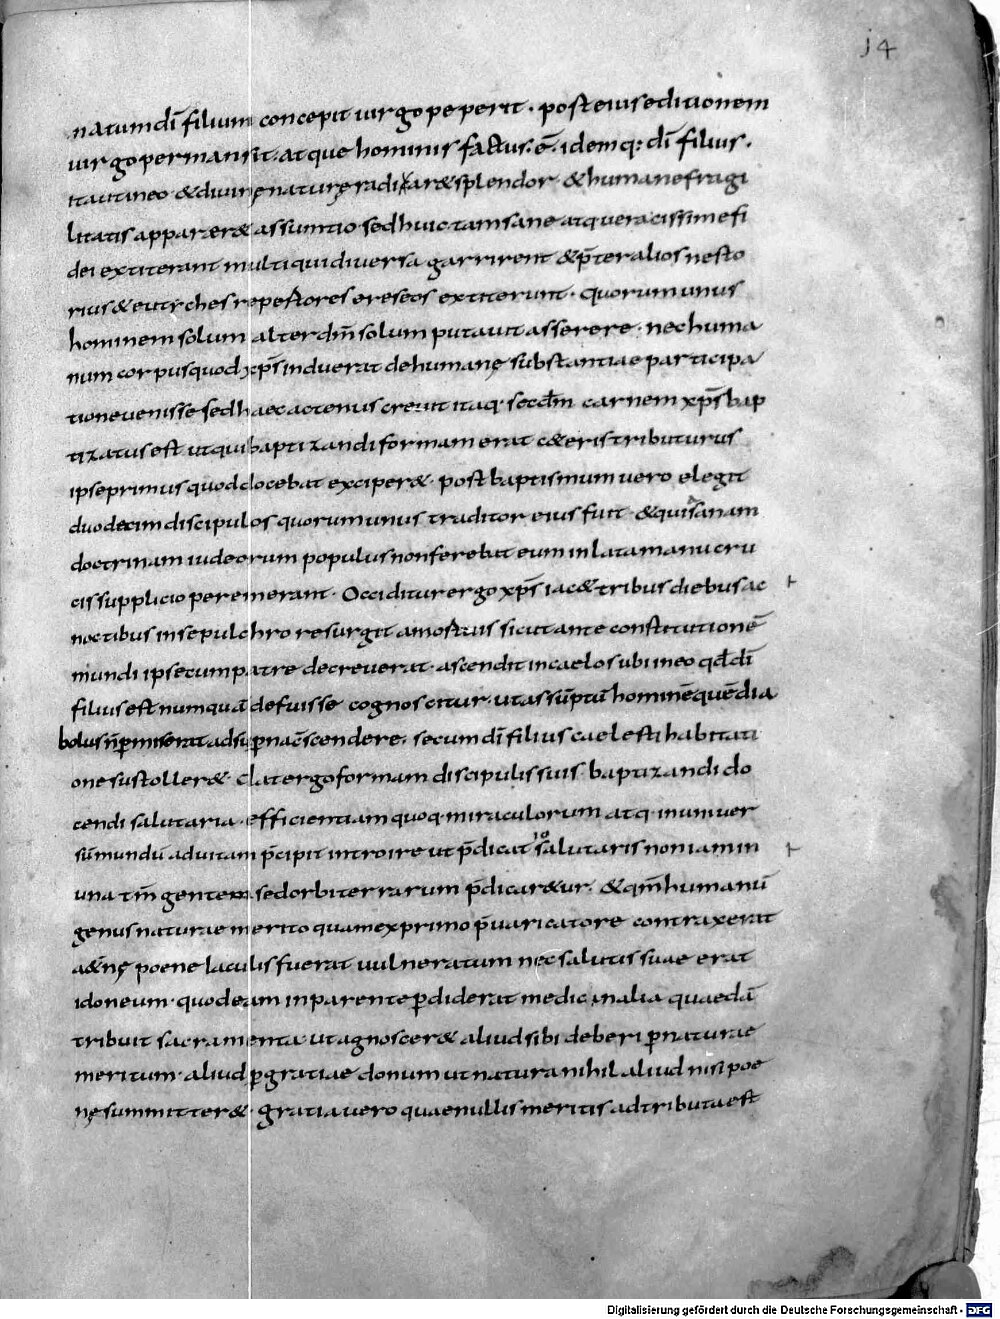 14
natum di̅ filium concepit uirgo peperit · post eius editionem
uirgo permansit · atque hominis factus · e̅ · idemq; di̅ filius ·
ita ut in eo & diuinę naturę radixar& splendor & humane fragi
litatis apparer& assumtio sed huic tam sane atque ueracissime fi
dei extiterant multi qui diuersa garrirent & p̅ter alios nesto
rius & eutyches repertores ereseos extiterunt · quorum unus
hominem solum alter dm̅ solum putauit asserere · nec huma
num corpus quod xp̅s induerat de humanę substantiae participa
tione uenisse sed haec actenus creuit itaq· secd̅m carnem xp̅s bap
tizatus est ut qui baptizandi formam erat c&eris tributurus
ipse primus quod docebat exciper& · post baptismum uero elegit
duodecim discipulos quorum unus traditor eius fuit · & quia sanam
doctrinam iudeorum populus non ferebat eum inlata manu cru
cis supplicio peremerant · Occiditur ergo xp̅s iac& tribus diebus ac
noctibus in sepulchro resurgit a mortuis sicut ante constitutione̅
mundi ipse cum patre decreuerat · ascendit in caelos ubi in eo qd̅ di̅
filius est numqua̅ defuisse cognoscitur · ut assu̅ptu̅ homine̅ que̅ dia
bolus n̅ p̅miserat ad sup̅na a̅scendere · secum di̅ filius caelesti habitati
one sustoller& · dat ergo formam discipulis suis baptizandi do
cendi salutaria · efficientiam quoq· miraculorum atq· in uniuer
su̅ mundu̅ ad uitam p̅cipit introire ut p̅dicatio salutaris non iam in
una tm̅ gentem sed orbi terrarum p̅dicar&ur · & qm̅ humanu̅
genus naturae merito quam ex primo p̅uaricatore contraxerat
aet̅nę poene iaculis fuerat uulneratum nec salutis suae erat
idoneum · quod eam in parente p̅diderat medicinalia quaeda̅
tribuit sacramenta · ut agnoscer& aliud sibi deberi p̅ naturae
meritum · aliud p̅ gratiae donum ut natura nihil aliud nisi poe
nę summitter& · gratia uero quae nullis meritis adtributa est
Digitalisierung gefördert durch die Deutsche Forschungsgemeinschaft - DFG